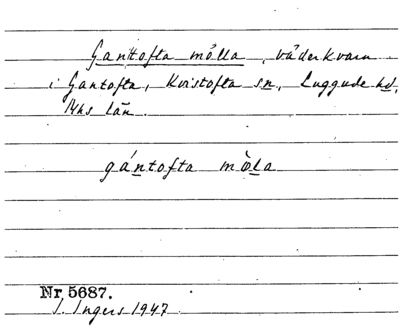 Gantofta mölla, väderkvarn
i Gantofta, Kvistofta sn, Luggude hd,
Mhs län.
gántofta mö̀la
Nr 5687.
I. Ingers 1947